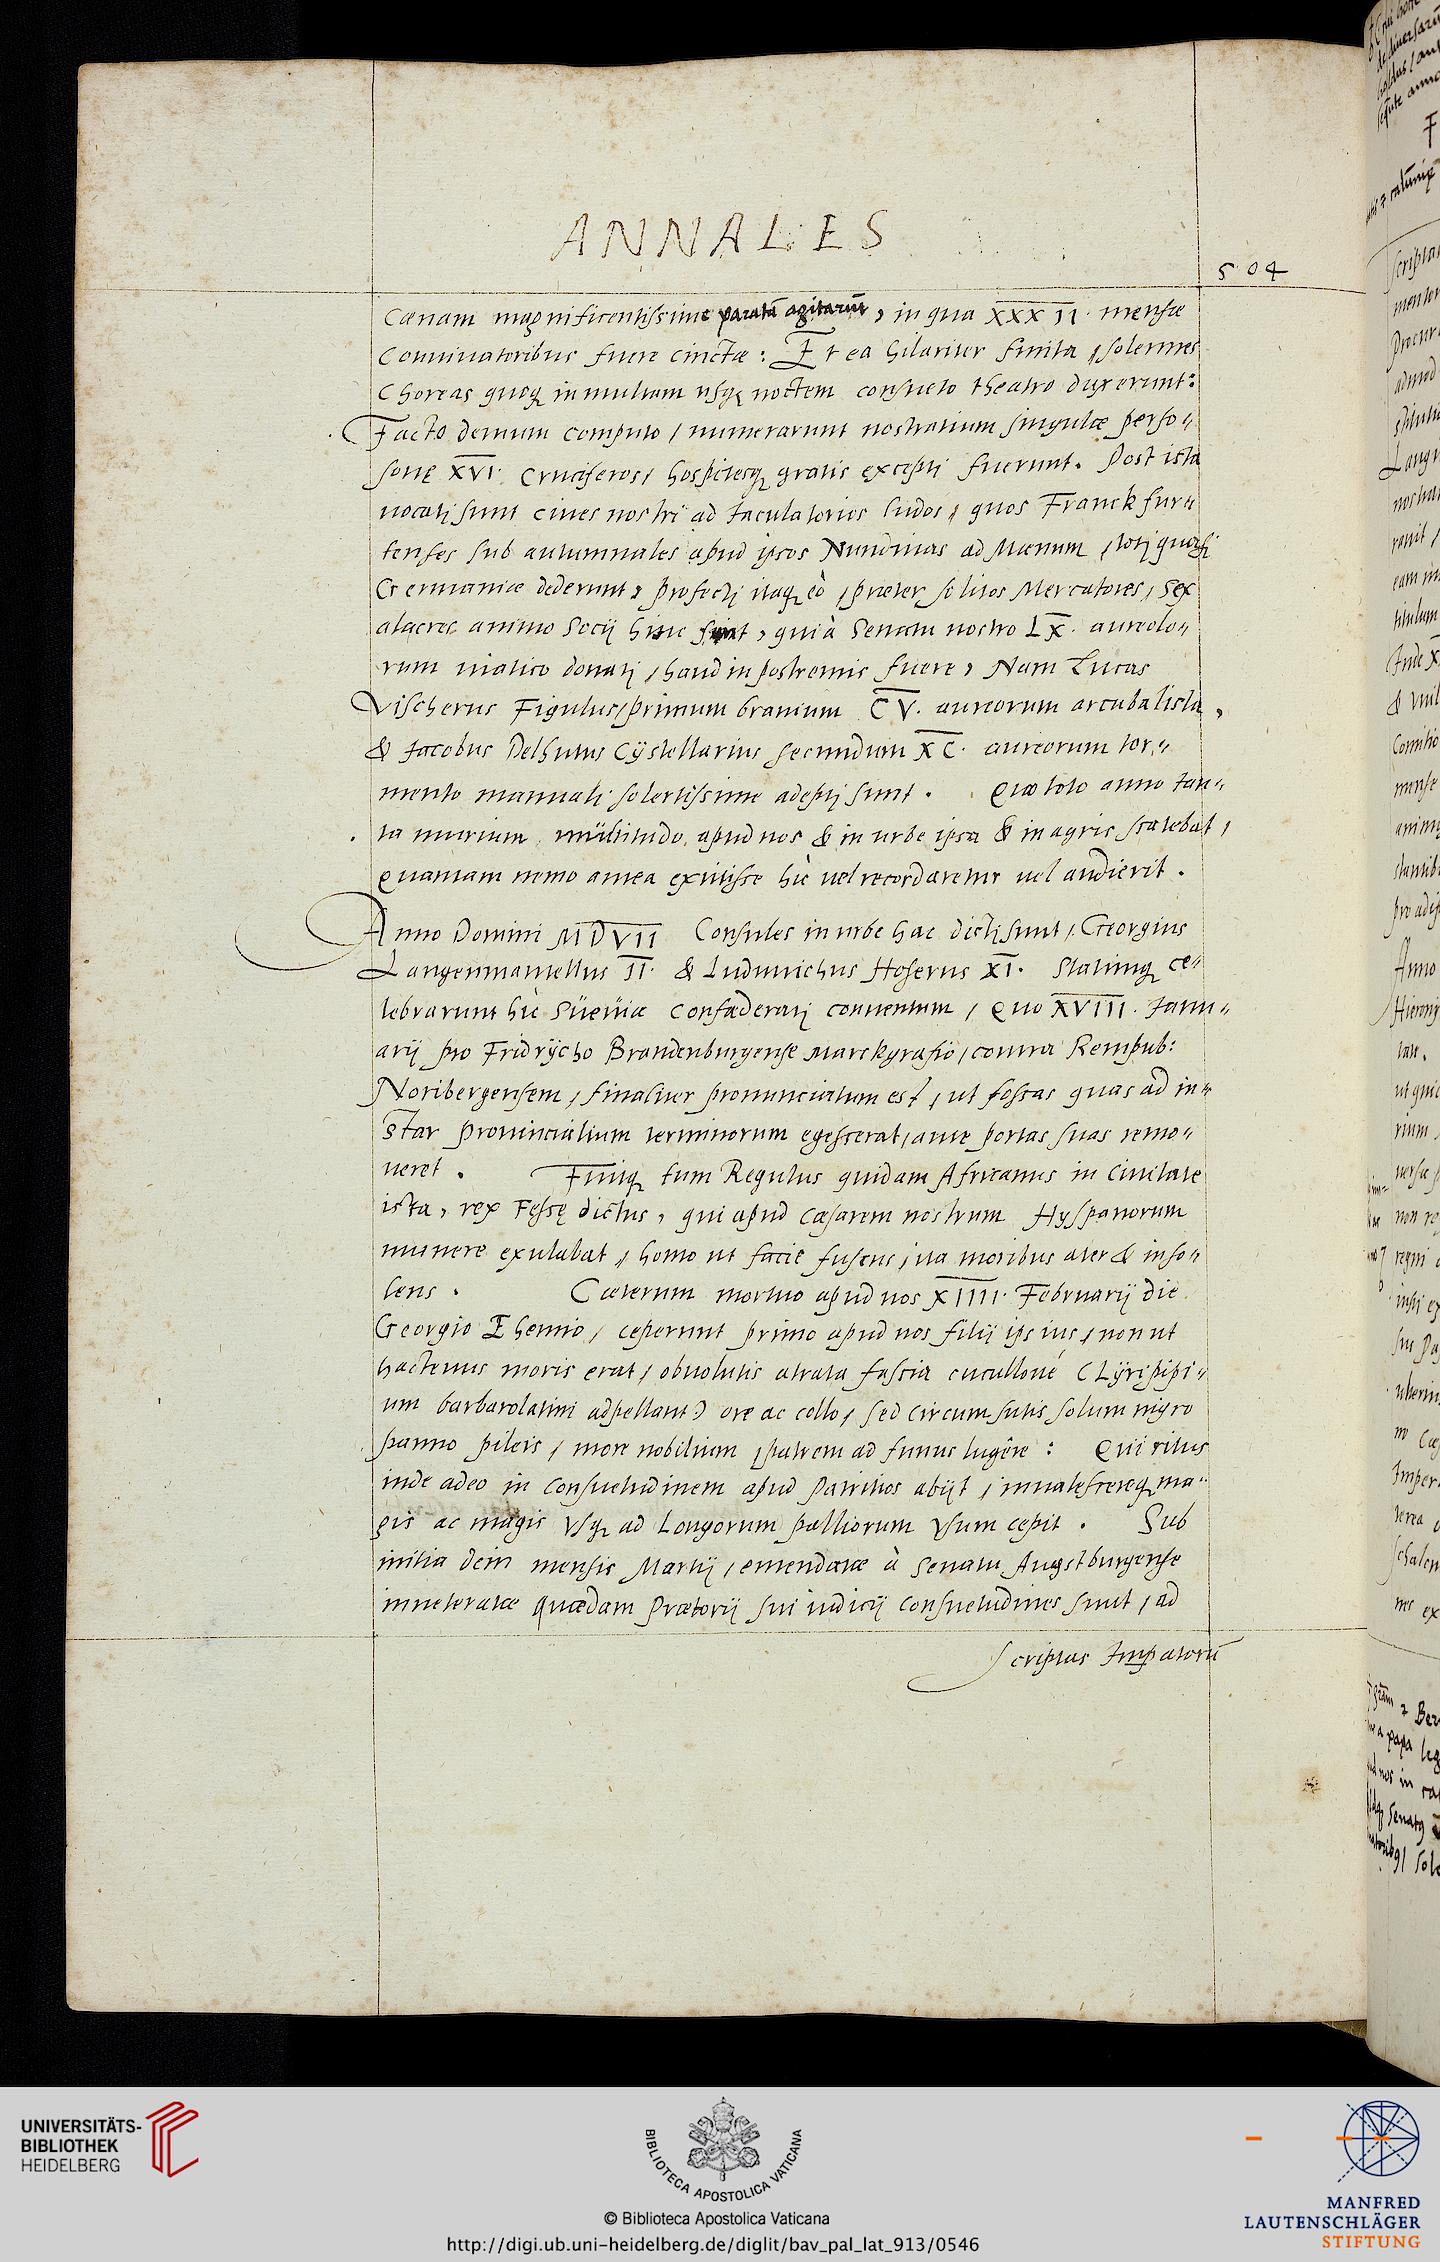 ANNALES
504
Cœnam magnificentissime paratā agitarūt, in qua XXXII. mensæ
Conuiuatoribus fuere cinctæ: Et ea hilariter finita, solemnes
Choreas quoq in multam usq noctem consueto theatro duxerunt:
Facto demum computo, numerarunt nostratium singulæ perso-
sonę XVI. Cruciferos, hospitesq gratis excepti fuerunt. Post ista
uocati sunt ciues nostri ad Iaculatorios ludos, quos Franckfur-
tenses sub autumnales apud ipsos Nundinas ad Mœnum, toti quasi
Germaniæ dederunt, profecti itaq eò, præter solitos Mercatores, sex
alacres animo Socij hinc sunt, qui à Senatu nostro LX. aureolo-
rum uiatico donati, haud in postremis fuere, Nam Lucas
Vischerus Figulus, primum brauium CV. aureorum arcubalista,
& Iacobus Delhutus Cÿstellarius secundum XC. aureorum tor-
mento manuali solertissime adepti sunt. Quo toto anno tan-
ta murium multitudo apud nos & in urbe ipsa & in agris scatebat,
Quantam nemo antea extitisse hîc uel recordaretur uel audierit.
Anno Domini MDVII Consules in urbe hac dicti sunt, Georgius
Langenmantellus II. & Luduuichus Hoserus XI. Statimq ce-
lebrarunt hîc Süeuiæ Confœderati conuentum, Quo XVIII. Ianu-
arij pro Fridrÿcho Brandenburgense Marckgrafio, contra Rempub:
Noribergensem, finaliter pronunciatum est, ut fossas quas ad in-
star prouincialium terminorum egesserat, ante portas suas remo-
ueret. Fuitq tum Regulus quidam Africanus in Ciuitate
ista, rex Fessę dictus, qui apud Cæsarem nostrum Hyspanorum
munere exulabat, homo ut facie fuscus, ita moribus ater & inso-
lens. Cæterum mortuo apud nos XIIII. Februarij die
Georgio Ehemio, ceperunt primo apud nos filij ipsius, non ut
hactenus moris erat, obuolutis atrata fascia cuculloué (Lÿripipi-
um barbarolatini adpellant) ore ac collo, sed circumsutis solum nigro
panno pileis, more nobilium, patrem ad funus lugêre: Qui ritus
inde adeo in consuetudinem apud Patritios abijt, inualescereq ma-
gis ac magis vsq ad Longorum palliorum vsum cepit. Sub
initia dein mensis Martij, emendatæ à Senatu Augstburgense
inueteratæ quædam Prætorij sui iudicij consuetudines sunt, ad
scriptas Impatorū
UNIVERSITÄTS-
BIBLIOTHEK
HEIDELBERG
BIBLIOTECA APOSTOLICA VATICANA
© Biblioteca Apostolica Vaticana
http://digi.ub.uni-heidelberg.de/diglit/bav_pal_lat_913/0546
MANFRED
LAUTENSCHLÄGER
STIFTUNG